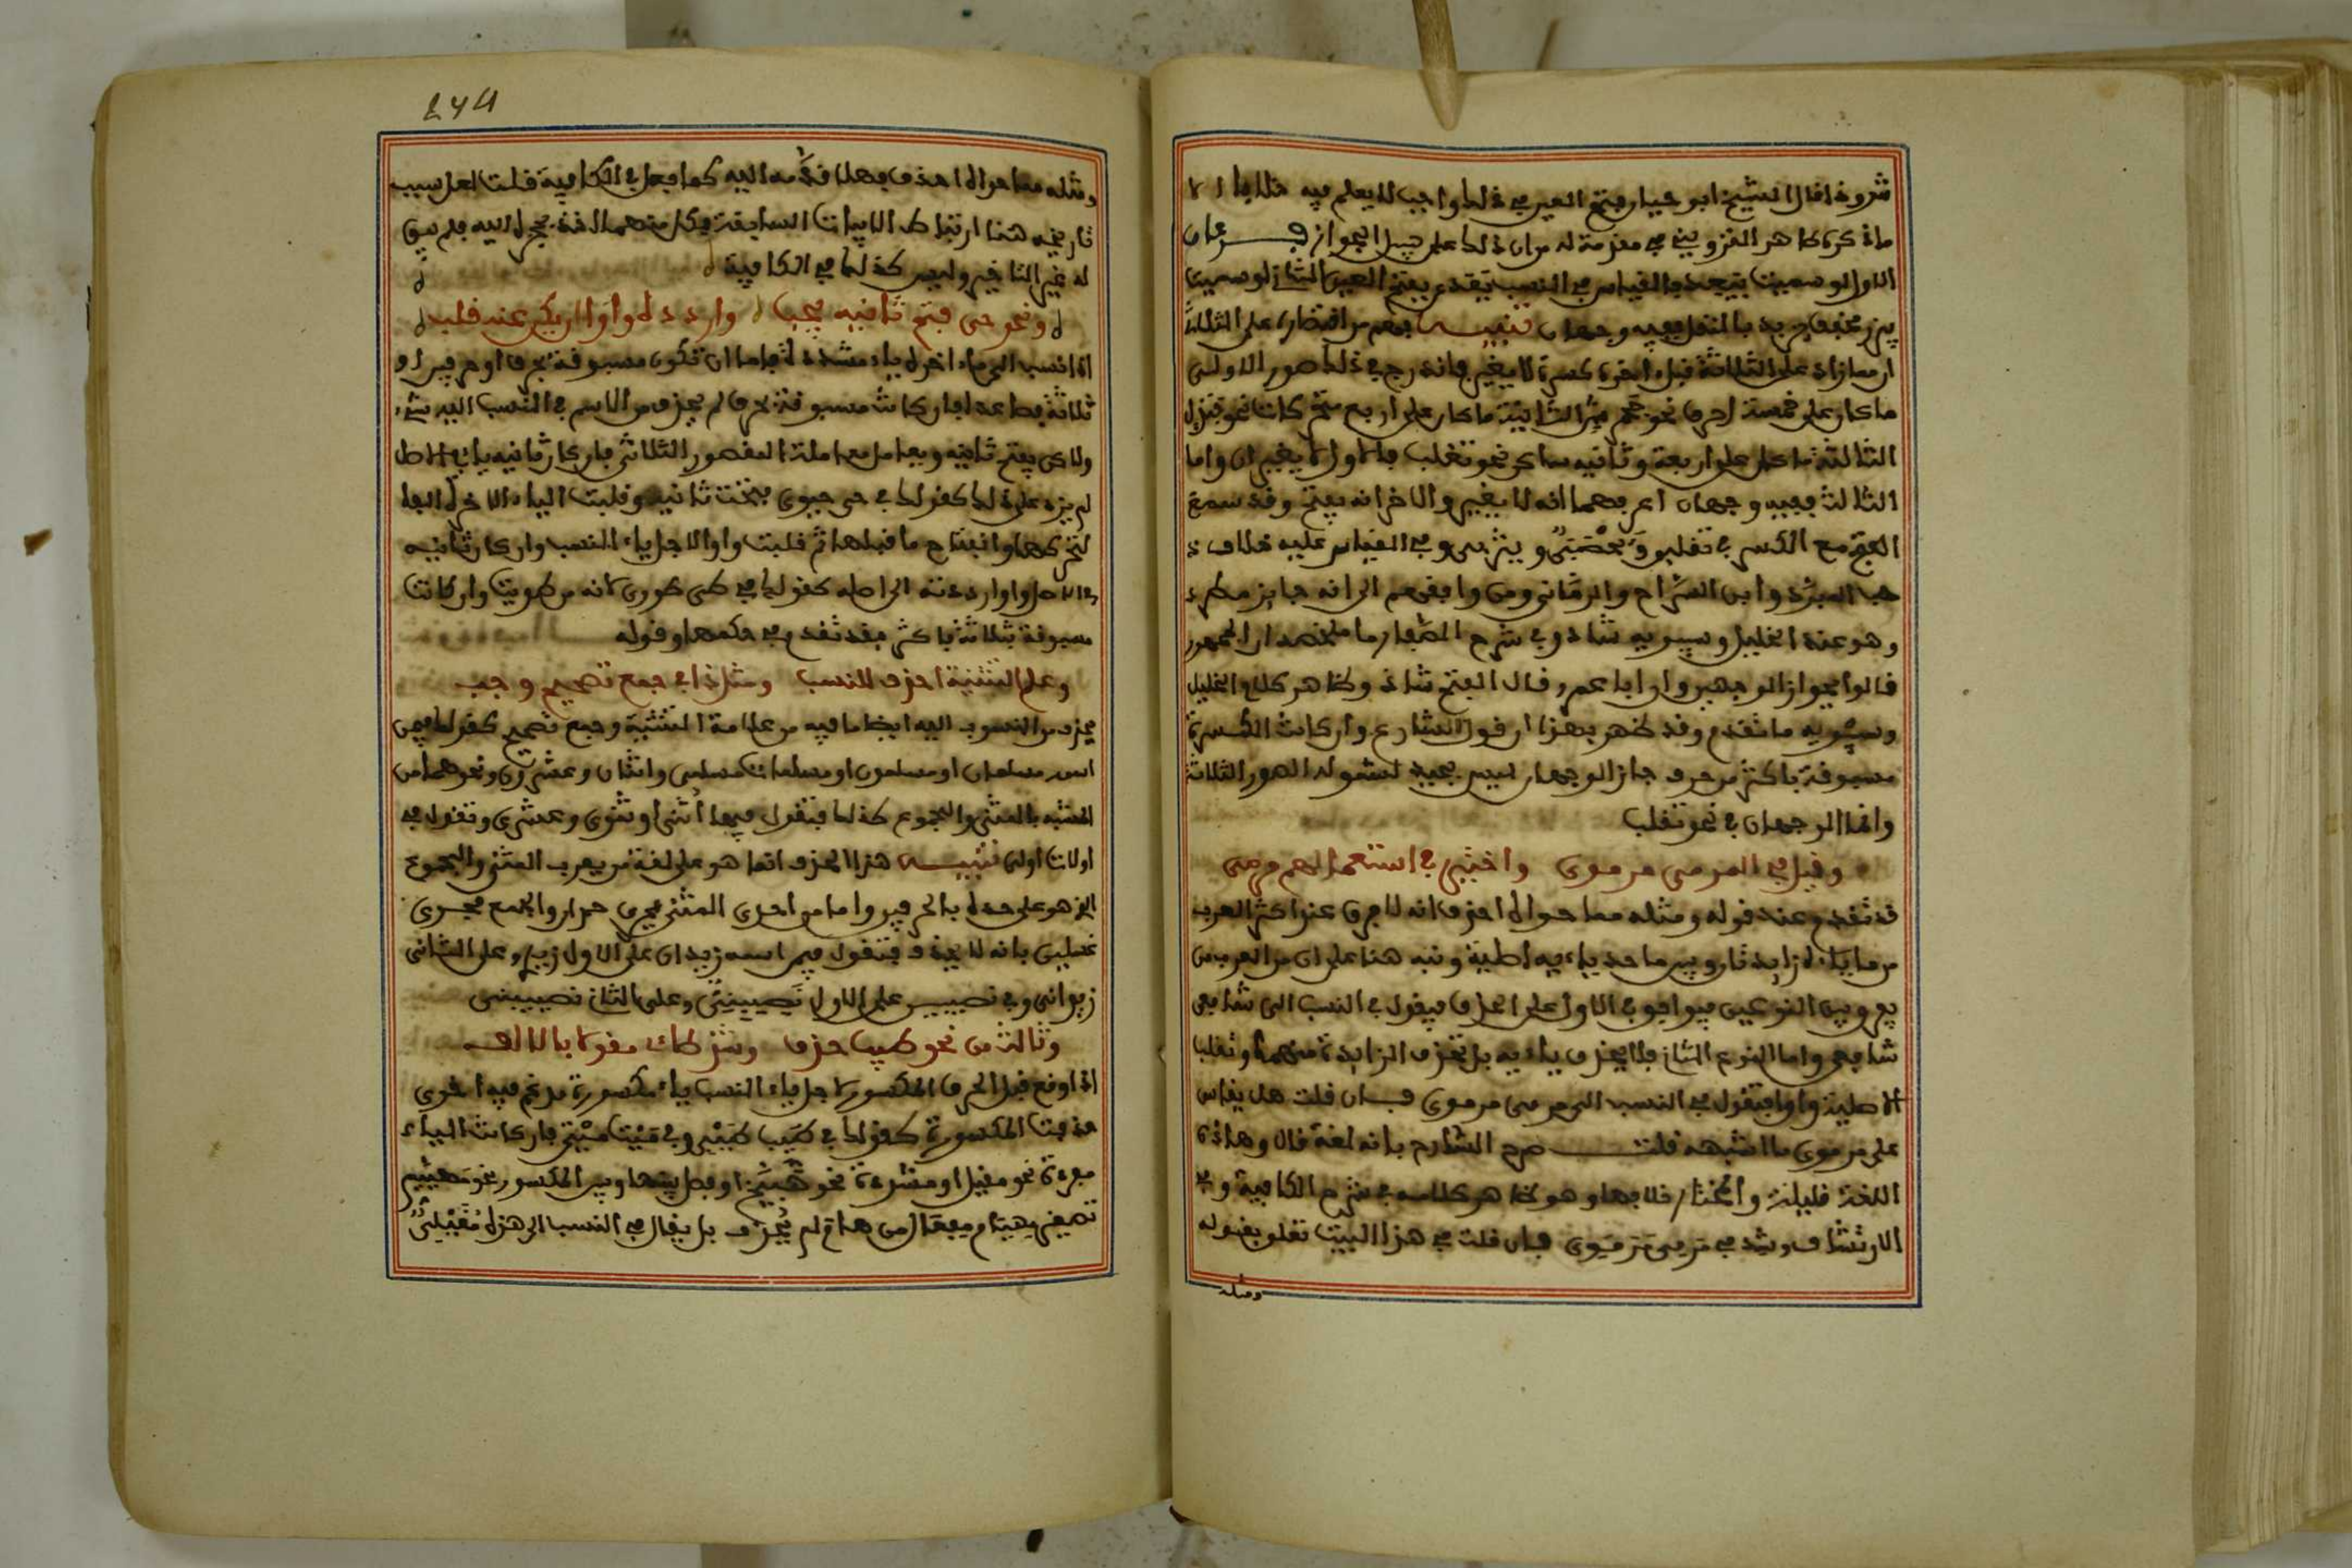 شذوذا قال الشيخ ابو حيان وفتح العين في ذلك واجب لا يعلم فيه خلافا الا
ما ذكره طاهر القزويني في مقدمة له من ان ذلك على سبيل الجواز فرعان
الاول لو سميت بيعد فالقياس في النسب يعدي بفتح العين الثاني لو سميت
يزر مخفف يزير بالنقل ففيه وجهان تنبيه فهم من اقتصاره على الثلاثي
ان ما زاد على الثلاثة قبل اخره كسرة لا يغير فاندرج في ذلك صور الاولى
ما كان على خمسة احرف نحو جحمرش الثانية ما كان على اربع متحركات نحو جندل
الثالثة ما كان على اربعة وثانيه ساكن نحو تغلب فالاول لا يغيران واما
الثالث ففيه وجهان اعرفهما انه لا يغير والاخر انه يفتح وقد سمع
الفتح مع الكسر في تغلبي ويحصبي ويثربي وفي القياس عليه خلاف ذ
هب المبرد وابن السراج والرماني ومن وافقهم الى انه جايز مطرد
وهو عند الخليل وسيبويه شاذ وفي شرح الصفار ما ملخصه ان الجمهور
قالوا بجواز الوجهين وان ابا عمرو قال الفتح شاذ وظاهر كلام الخليل
وسيبويه ما تقدم وقد ظهر بهذا ان قول الشارح وان كانت الكسرة
مسبوقة باكثر من حرف جاز الوجهان ليس بجيد لشموله الصور الثلاثة
وانما الوجهان في نحو تغلب
وقيل في المرمي مرموي واختير في استعمالهم مرمي
قد تقدم عند قوله ومثله مما حواه احذف انه لا فرق عند اكثر العرب
من ما ياءاه زايدتان وبين ما احد ياءيه اصلية ونبه هنا على ان من العرب من
يفرق بين النوعين فيوافق في الاول على الحذف فيقول في النسب الى شافعي
شافعي واما النوع الثاني فلا يحذف ياءيه بل تحذف الزايدة منهما وتقلب
الاصلية واوا فتقول في النسب الى مرمي مرموي فان قلت هل يقاس
على مرموي ما اشبهه قلت صرح الشارح بانه لغة قال وهاذه
اللغة قليلة والمختار خلافها وهو ظاهر كلامه في شرح الكافية وفي
الارتشاف وشذ في مرمي مرموي فان قلت في هذا البيت تعلق بقوله
ومثله
244
ومثله مما حواه احذف فهلا قدمه اليه كما فعل في الكافية قلت لعل سبب
تاريخه هنا ارتباط الابيات السابقة بعضها
له غير التاخير وليس كذلك في الكافية
ونحو حي فتح ثانيه يجب واردده واوا ان يكن عنه قلب
اذا نسب الى ما اخره ياء مشددة فاما ان تكون مسبوقة بحرف او حرفين او
ثلاثة فصاعدا فان كانت مسبوقة بحرف لم يحذف من الاسم في النسب اليه شيء
ولاكن يفتح ثانيه ويعامل معاملة المقصور الثلاثي فان كان ثانيه ياء في الاصل
لم يزد على ذلك كقولك في حي حيوي فتحت ثانيه وقلبت الياء الاخيرة الفا
لتحركها وانفتاح ما قبلها ثم قلبت واوا لاجل ياء النسب وان كان ثانيه
في الاصل واوا رددته الى اصله كقولك في طي طووي لانه من طويت وان كانت
مسبوقة بثلاثة فاكثر فقد تقدم في حكمها وقوله
وعلم التثنية احذف للنسب ومثل ذا في جمع تصحيح وجب
يحذف من المنسوب اليه ايضا ما فيه من علامة التثنية وجمع تصحيح كقولك فيمن
اسمه مسلمان او مسلمون او مسلمات مسلمي واثنان وعشرون ونحوهما من
المشبه بالمثنى والمجموع كذلك فتقول فيهما اثني او ثنوي وعشري وتقول في
اولات اولي تنبيه هذا الحذف انما هو على لغة من يعرب المثنى والمجموع
الذي هو على حده بالحرفين واما من اجرى المثنى مجرى حمدان والجمع مجرى
غسلين فانه لا يحذف فتقول فيمن اسمه زيدان على الاول زيدي وعلى الثاني
زيداني وفي نصيبين على الاول نصيبي وعلى الثاني نصيبيني
وثالث من نحو طيب حذف وشذ طائي مقولا بالالف
اذا وقع قبل الحرف المكسور لاجل ياء النسب ياء مكسورة مدغم فيه اخرى
حذفت المكسورة كقولك في طيب طيبي وفي ميت ميتي فان كانت الياء
مفردة نحو مغيل او مشددة نحو هبيخ او فصل بينها وبين المكسور نحو مهييم
تصغير مهيام مفعال من هام لم يحذف بل يقال في النسب الى هذه مغيلي